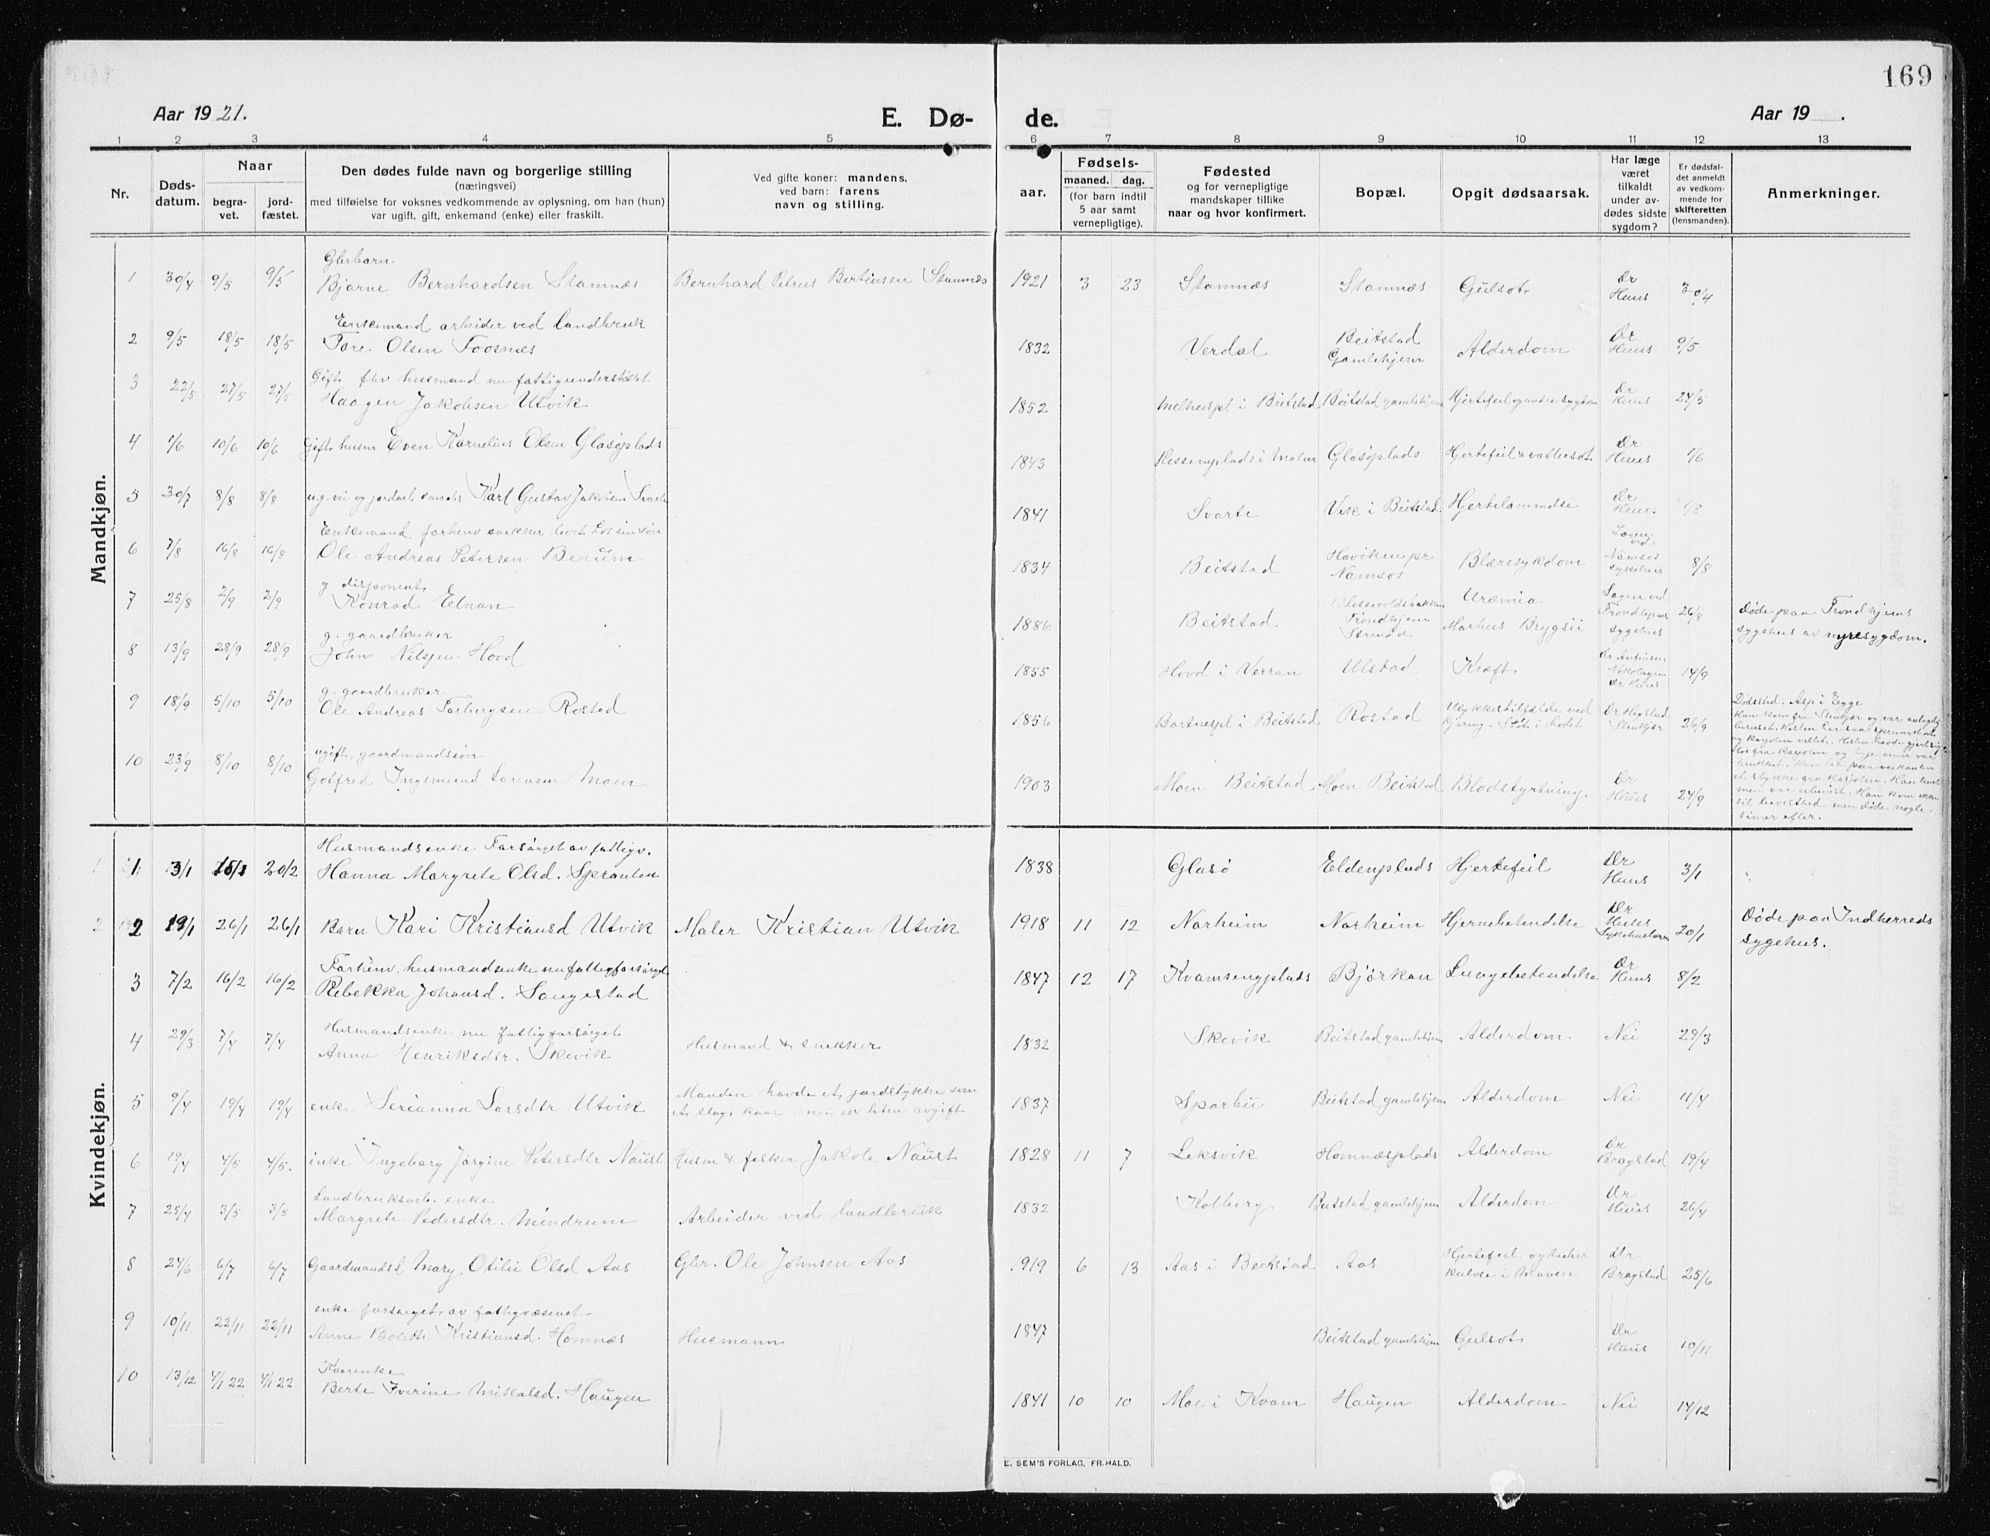 169
Aar 1921.
E. Dø- de.
Aar 19 .
1 2 3 4 5 6 7 8 9 10 11 12 13
Nr.
Døds-
datum.
Naar
begra-
vet.
jord-
fæstet.
Den dødes fulde navn og borgerlige stilling
(næringsvei)
med tilføielse for voksnes vedkommende av oplysning, om han (hun)
var ugift, gift, enkemand (enke) eller fraskilt.
Ved gifte koner: mandens,
ved barn: farens
navn og stilling.
aar.
Fødsels-
maaned. dag.
(for barn indtil
5 aar samt
vernepligtige).
Fødested
og for vernepligtige
mandskaper tillike
naar og hvor konfirmert.
Bopæl.
Opgit dødsaarsak.
Har læge
været
tilkaldt
under av-
dødes sidste
sygdom?
Er dødsfal-
det anmeldt
av vedkom-
mende for
skifteretten
(lensmanden).
Anmerkninger.
Mandkjøn.
1 30/4 9/5 9/5 Bjarne Bernhardsen Stamnæs Bernhard Petrus Bertinsen Stamnæs 1921 3 23 Stamnæs Stamnæs Gulsot Dr Huus 30/4
2 9/5 18/5 18/5 Enkemand arbeider ved landbruk
Tore Olsen Foosnæs 1832 Verdal Beitstad Gamlehjem Alderdom Dr Huus 9/5
3 22/5 27/5 27/5 Gift fhv husmand nu fattigunderstøttet
Haagen Jakobsen Utvik 1852 i Beitstad Beitstad gamlehjem Hjertefeil og andre sygdom Dr Huus 24/5
4 1/6 10/6 10/6 Gift husm Even Kornelius Olsen Glasøplads 1843 i Malm Glasøplads Hjertefeil & vattersot Dr Huus 1/6
5 30/7 8/8 8/8 Karl Gustav Jakobsen 1841 Svarte Vik i Beitstad Hjertelammelse Dr Huus
6 7/8 16/8 16/8 Enkemand forhenv snekker
Ole Andreas Petersen 1834 Beitstad Namsos Blæresykdom Namsos sykehus 8/8
7 25/8 2/9 2/9 g. disponent
Konrad Elnan 1886 Beitstad. Trondhjem Strinda Uræmia Morbus Brygtii Trondhjems sygehus 26/8 Døde paa Trondhjems
sygehus av nyresygdom.
8 13/9 28/9 28/9 g. gaardbruker
John Nilsen Hovd 1855 Hovd i Verran Ulstad Kræft 14/9
9 18/9 5/10 5/10 g. gaardbruker
Ole Andreas Torbergsen Rostad 1856 i Beitstad Rostad Ulykkestilfælde ved
kjøring - Støt i hodet Steinkjær 26/9 Dødssted. Asp i Egge
Han kom fra Stenkjær og var
til bevissthed men døde nogle
timer efter.
10 23/9 8/10 8/10 ugift, gaardmandssøn
Gotfred Ingemund Sørensen Moen 1903 Moen Beitstad Moen Beitstad Blodstyrtning Dr Huus 24/9
Kvindekjøn.
1 3/1 15/1 20/2 Husmandsenke Forsørget av fattigv.
Hanna Margrete Olsd. Sprauten 1838 Glasø Eldenplads Hjertefeil Dr Huus 3/1
2 19/1 26/1 26/1 Barn Kari Kristiansd Utvik Maler Kristian Utvik 1918 11 12 Norheim Norheim Hjernebetendelse Dr Huus 20/1 Døde paa Indherreds
sygehus.
3 7/2 16/2 16/2 Forhenv. husmandsenke nu fattigforsørget
Rebekka Johansd. Langestad 1847 12 17 Kvamsengplads Bjørkan Lungebetendelse Dr Huus 8/2
4 29/3 7/4 7/4 Husmandsenke nu fattigforsørget
Anna Henriksdtr. Skevik Husmand & snekker 1832 Skevik Beitstad gamlehjem Alderdom. Nei 29/3
5 9/4 19/4 19/4 enke Serianna Larsdtr Utvik Manden havde et jordstykke som 1837 Sparbu Beitstad gamlehjem Alderdom Nei 11/4
6 19/4 4/5 4/5. enke Ingeborg Jørgine Petersdtr Naust Husm & fisker Jakob Naust 1828 11 7 Leksvik Homnæsplads Alderdom Dr Bragstad 19/4
7 25/4 3/5 3/5 Landbruksarb. enke
Margrete Pedersdtr. Mindrum Arbeider ved landbruk 1832 Kolberg Beitstad gamlehjem Alderdom Dr Huus 26/4
8 24/6 6/7 6/7 Gaardmandsd Mary Otilie Olsd Aas Gbr. Ole Johnsen Aas 1919 6 13 Aas i Beitstad Aas Hjertefeil i maven Dr Bragstad 25/6
9 10/11 22/11 22/11 enke forsørget av fattigvæsenet
Anne Bolette Kristiansd. Homnæs Husmann 1847 Beitstad gamlehjem Gulsot Dr Huus 10/11
10 13/12 4/1 22 4/1 22 Berte Iverine Mikalsd. Haugen 1841 10 10 Moe i Kvam Haugen Alderdom Nei 14/12
E. SEM'S FORLAG, FR.HALD.